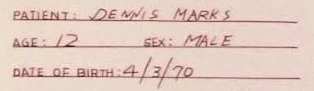 PATIENT: DENNIS MARKS
AGE: 12 SEX: MALE
DATE OF BIRTH: 4/3/70